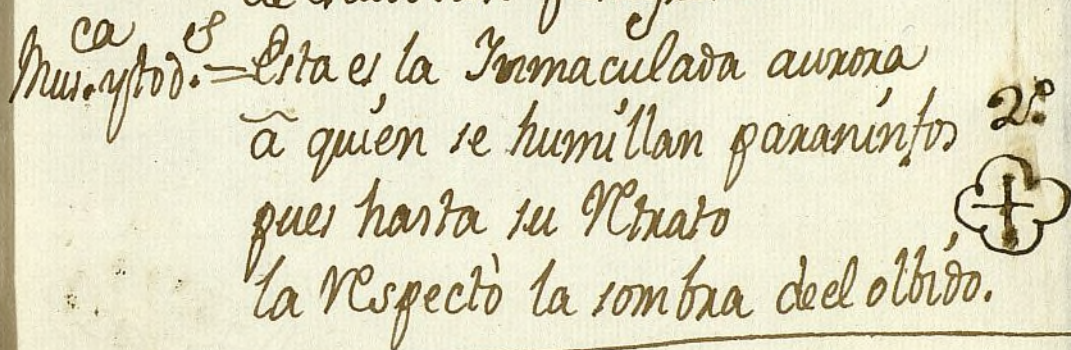 Mus.ca y tod.s = Esta es la Inmaculada aurora
â quien se humillan paraninfos 2.º
pues hasta su Retrato
la Respectò la sombra deel olbido.